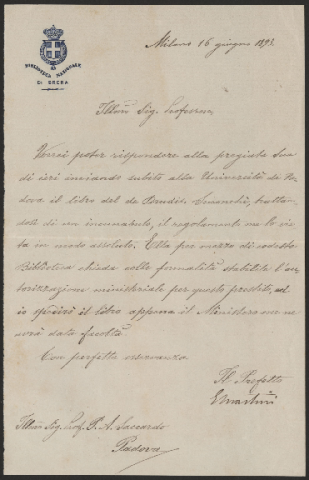 BIBLIOTECA NAZIONALE
DI BRERA
Milano 16 giugno 1893
Illmo Sig. Professore,
Vorrei poter rispondere alla pregiata Sua
di ieri inviando subito alla Università di Pa-
dova il libro del de Bondis, ma trattan-
dosi di un incunabulo, il regolamento me lo vie-
ta in modo assoluto. Ella per mezzo di codesta
Biblioteca chieda colle formalità stabilite l'au-
torizzazione ministeriale per questo prestito, ed
io spedirò il libro appena il Ministero me ne
avrà data facoltà.
Con perfetta osservanza
Il Prefetto
E Martini
Illmo Sig. Prof. P. A. Saccardo
Padova